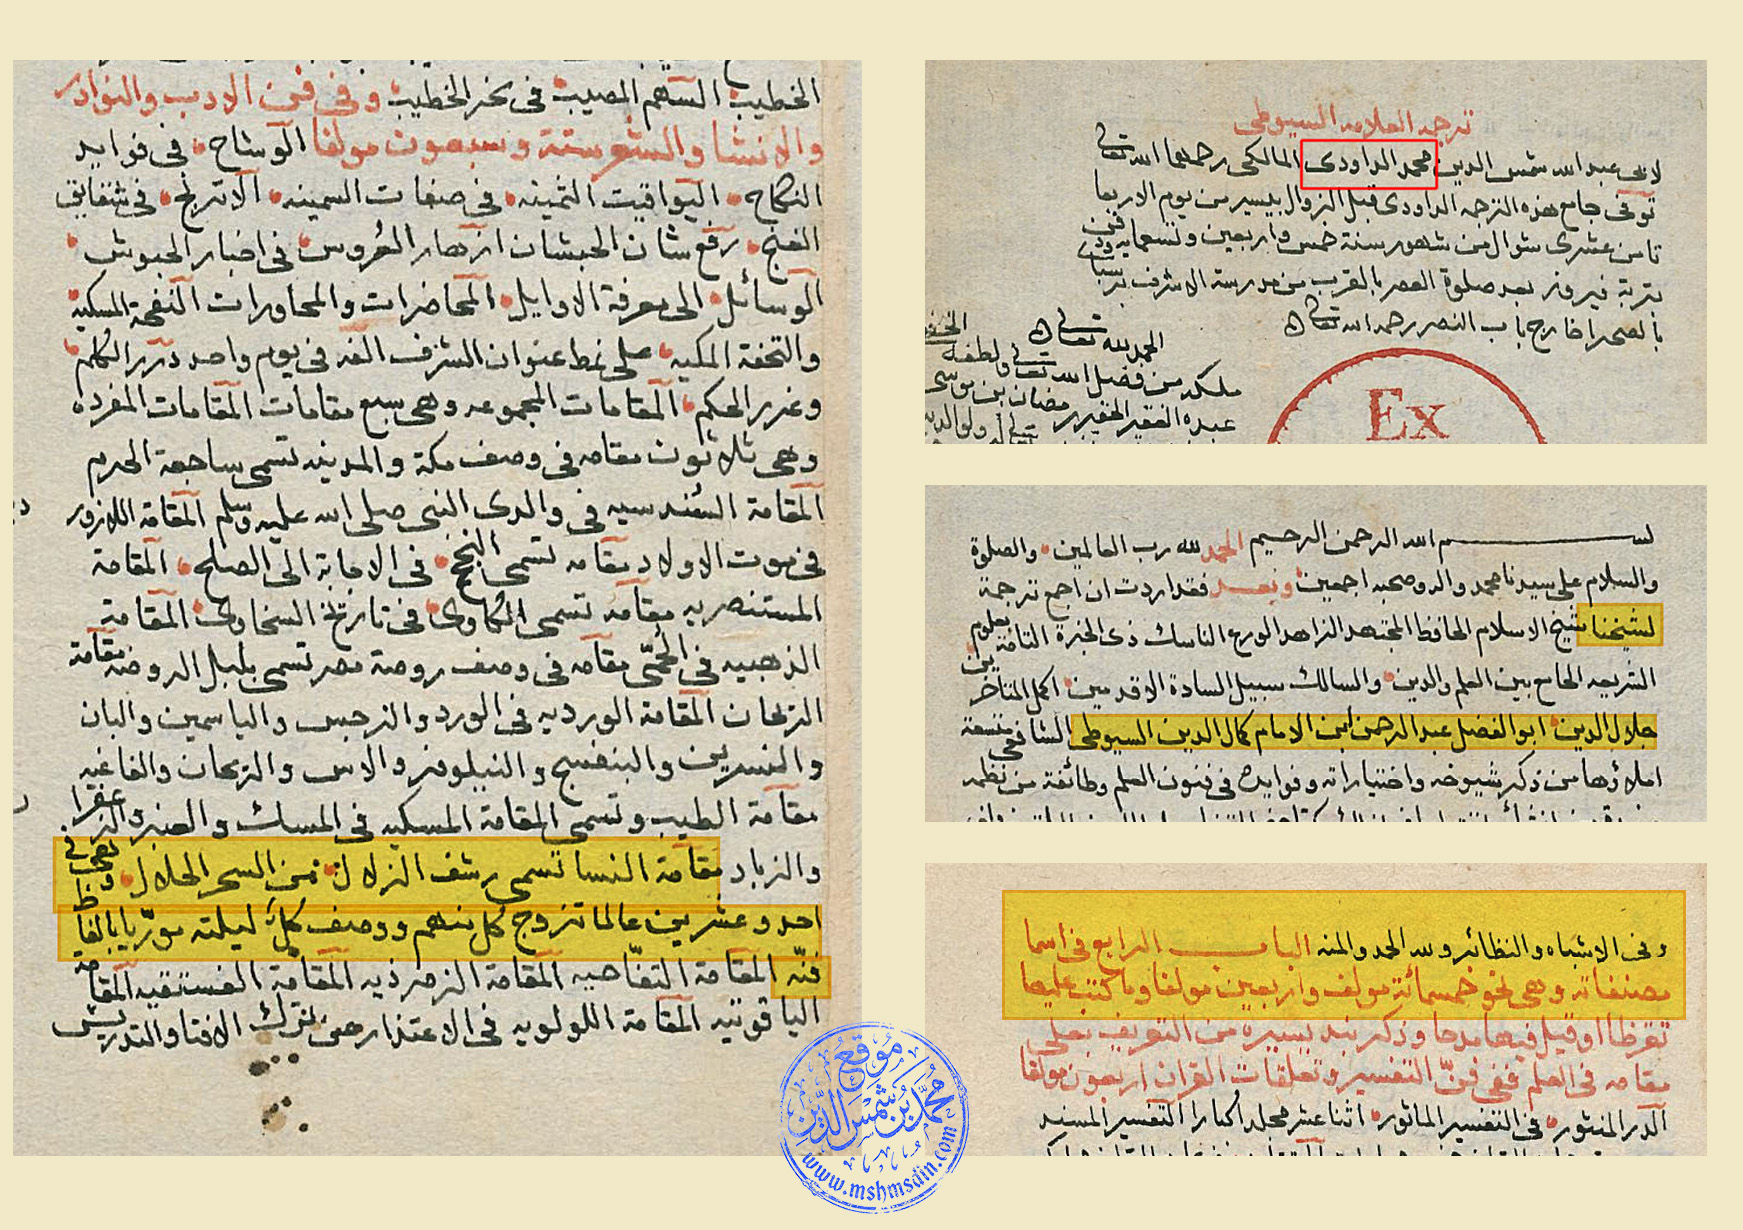 ترجمة العلامه السيوطى
لابى عبد الله شمس الدين محمد الداودى المالكى رحمهما الله تعالى
توفى جامع هذه الترجمه الداودى قبل الزوال بيسير من يوم الاربعا
ثامن عشرى شوال من شهور سنة خمس واربعين وتسعمايه ودفن
بتربة فيروز بعد صلوة العصر بالقرب من مدرسة الاشرف برسباى
بالصحرا خارج باب النصر رحمه الله تعالى
الحمد لله تعالى
ملكه من فضل الله تعالى ولطفه
عبده الفقير الحقير رمضان بن موسى
Ex
بسم الله الرحمن الرحيم الحمد لله رب العالمين والصلوة
والسلام على سيدنا محمد واله وصحبه اجمعين وبعد فقد اردت ان اجمع ترجمة
لشيخنا شيخ الاسلام الحافظ المجتهد الزاهد الورع الناسك ذى الخبرة التامة بعلوم
الشريعه الجامع بين العلم والدين والسالك سبيل السادة الاقدمين اكمل المتاخرين
جلال الدين ابو الفضل عبد الرحمن ابن الامام كمال الدين السيوطى الشافعى
املاؤها من ذكر شيوخه واختياراته وفوايده فى فنون العلم وطائفة من نظمه
وفى الاشباه والنظائر ولله الحمد والمنه الباب الرابع فى اسما
مصنفاته وهى نحو خمسمائة مولف واربعين مولفا وما كتب عليها
تقرظا او قيل فيها مدحا وذكر نبذ يسيره من التعريف بعلى
مقامه فى العلم ففى فن التفسير وتعلقات القران اربعون مولفا
الدر المنثور فى التفسير الماثور اثنا عشر مجلدا كبارا التفسير المسند
الخطيب السهم المصيب فى نحر الخطيب وفى فن الادب والنوادر
والانشا والشعر ستة وسبعون مولفا الوشاح فى فوايد
النكاح اليواقيت الثمينه فى صفات السمينه الاترنج فى شقايق
الغنج رفع شان الحبشان ازهار العروس فى اخبار الحبوش
الوسائل الى معرفة الاوايل المحاضرات والمحاورات النفحة المسكيه
والتحفة المكيه على نمط عنوان الشرف الفه فى يوم واحد درر الكلم
وغرر الحكم المقامات المجموعه وهى سبع مقامات المقامات المفرده
وهى ثلاثون مقامه فى وصف مكة والمدينه تسمى ساجعة الحرم
المقامة السندسيه فى والدى النبى صلى الله عليه وسلم المقامة اللازورديه
فى موت الاولاد مقامه تسمى النجح فى الاجابة الى الصلح المقامة
المستنصريه مقامه تسمى الكاوى فى تاريخ السخاوى المقامة
الذهبيه فى الحمى مقامه فى وصف روضة مصر تسمى بلبل الروضه مقامة
الريحان المقامة الورديه فى الورد والنرجس والياسمين والبان
والنسرين والبنفسج والنيلوفر والاس والريحان والفاغيه
مقامة الطيب وتسمى المقامة المسكيه فى المسك والعنبر والزعفران
والزباد مقامة النسا تسمى رشف الزلال من السحر الحلال وهى فى وصف
احد وعشرين عالما تزوج كل منهم ووصف كل ليلته موريا بالفاظ
فنه المقامة التفاحيه المقامة الزمرذيه المقامة الفستقيه المقامة
الياقوتيه المقامة اللولويه فى الاعتذار عن ترك الافتا والتدريس
موقع
محمد بن شمس الدين
www.mshmsdin.com